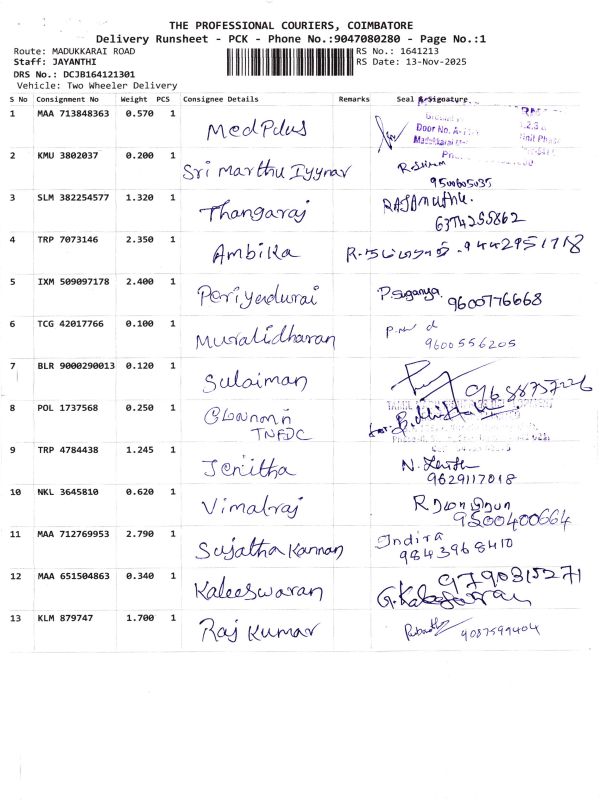 THE PROFESSIONAL COURIERS, COIMBATORE
Delivery Runsheet - PCK - Phone No.:9047080280 - Page No.:1
Route: MADUKKARAI ROAD RS No.: 1641213
Staff: JAYANTHI RS Date: 13-Nov-2025
DRS No.: DCJB164121301
Vehicle: Two Wheeler Delivery
S No Consignment No Weight PCS Consignee Details Remarks Seal & Signature
1 MAA 713848363 0.570 1 MedPlus
Door No. A-
2 KMU 3802037 0.200 1 Sri Marthu Iyynar
9500605035
3 SLM 382254577 1.320 1 Thangaraj
6374255862
4 TRP 7073146 2.350 1 Ambika 9442951718
5 IXM 509097178 2.400 1 Periyadurai P.Suganya. 9600776668
6 TCG 42017766 0.100 1 Muralidharan
9600556205
7 BLR 9000290013 0.120 1 Sulaiman
8 POL 1737568 0.250 1
TNFDC
9 TRP 4784438 1.245 1 Jenitha
9629117018
10 NKL 3645810 0.620 1 Vimalraj
9500400664
11 MAA 712769953 2.790 1 Sujatha Kannan Indira
9843968410
12 MAA 651504863 0.340 1 Kaleeswaran 9790815271
13 KLM 879747 1.700 1 Raj Kumar 9087599404